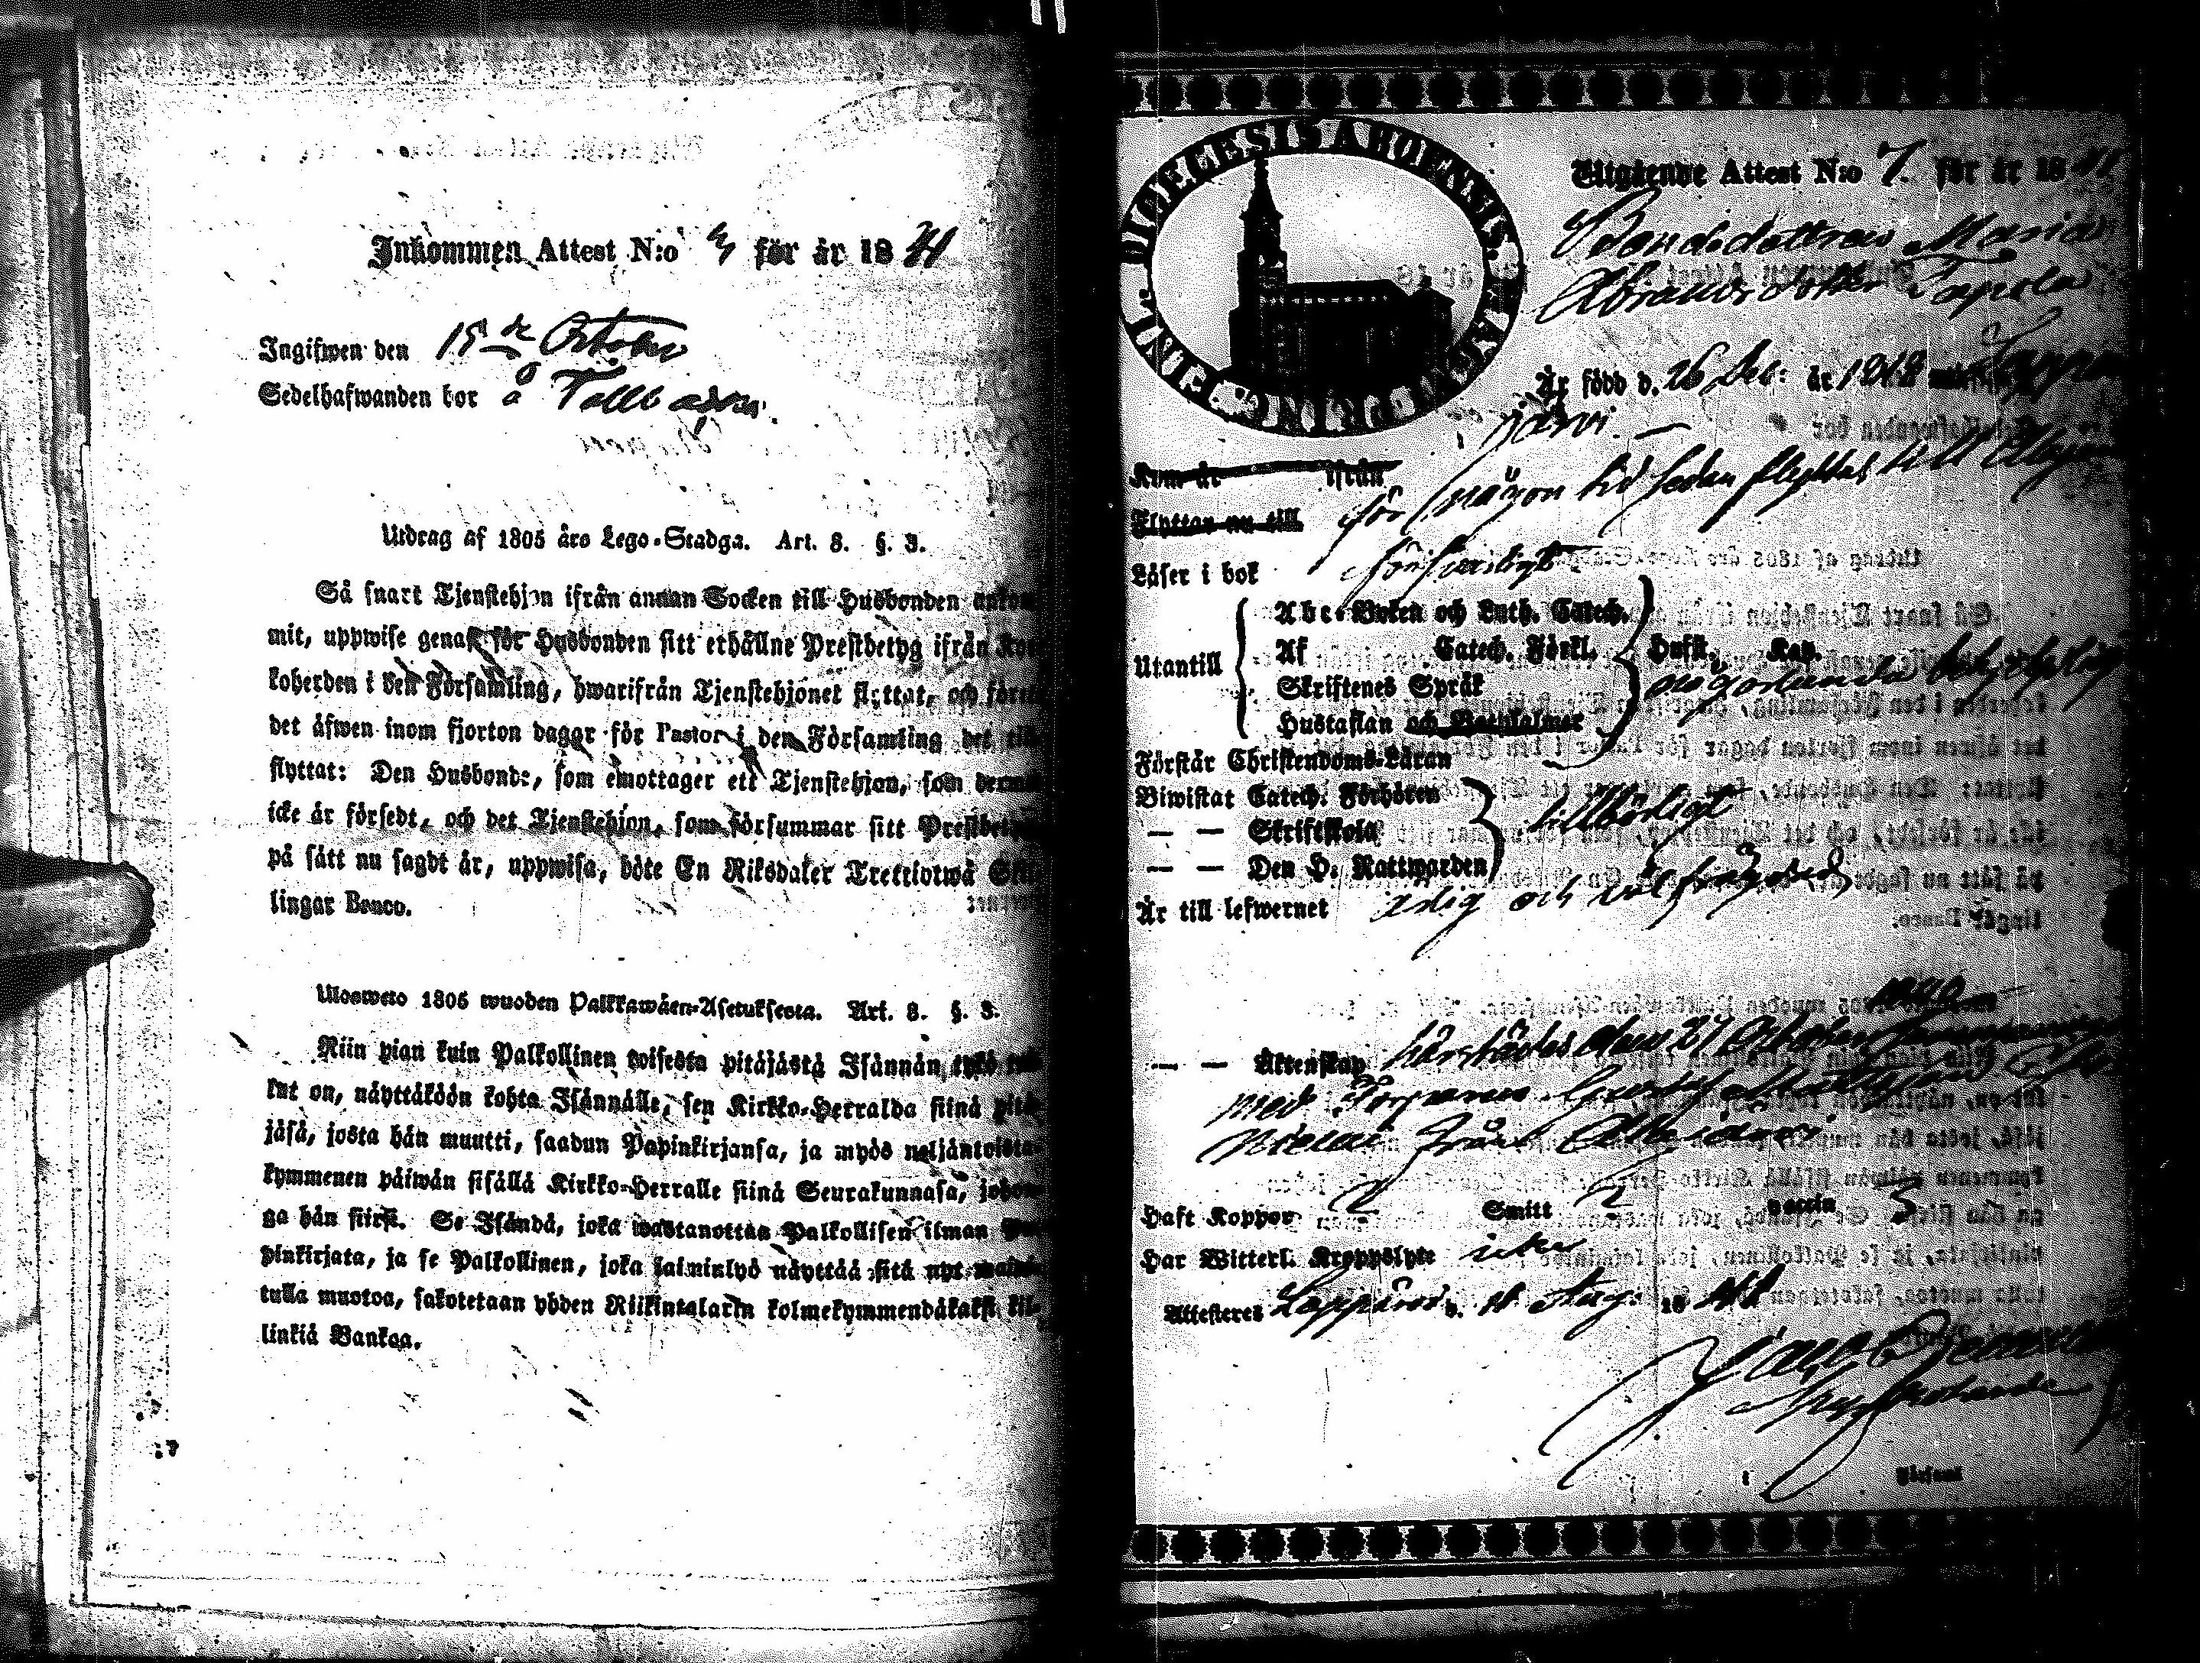 Inkommen Attest N:o 3 för år 1841
Ingifwen den 15de October
Sedelhafwanden bor å Tallbacken.
Utdrag af 1805 års Lego-Stadga. Art. 8. §. 3.
Så snart Tjenstehjon ifrån annan Socken till Husbonden ankom-
mit, uppwise genast för Husbonden sitt erhållne Prestbetyg ifrån Kyr-
koherden i den Församling, hwarifrån Tjenstehjonet flyttat, och förete
det äfwen inom fjorton dagar för Pastor i den Församling det till-
flyttat: Den Husbonde, som emottager ett Tjenstehjon, som dermed
icke är försedt, och det Tjenstehjon, som försummar sitt Prestbetyg
på sätt nu sagdt är, uppwisa, böte En Riksdaler Tretriotwå Skil-
lingar Banco.
Ulosweto 1805 wuoden Palkkawäen-Asetuksesta. Art. 8. §. 3.
Niin pian kuin Palkollinen toisesta pitäjästä Isännän tykö tul-
lut on, näyttäköön kohta Isännälle, sen Kirkko-Herralda siinä pitä-
jäsä, josta hän muutti, saadun Papinkirjansa, ja myös neljäntoista-
kymmenen päiwän sisällä Kirkko-Herralle siinä Seurakunnasa, johon-
ga hän siirsi. Se Isändä, joka wastanottaa Palkollisen ilman Pa-
pinkirjata, ja se Palkollinen, joka laiminlyö näyttää sitä nyt maini-
tulla muotoa, sakotetaan yhden Riikintalarin kolmekymmendäkaksi kil-
linkiä Bankoa.
DIOECESIS ABOENSIS. MAGN. PRINC. FINL.
Utgående Attest N:o 7. för år 1841
Bondedottren Maria
Abrahamsdotter Tapola
Är född d. 26 Dec: år 1818
järvi
Kom år ifrån
Flyttar nu till för någon tid sedan flyttat till
Läser i bok försvarligt
Utantill Abc-Boken och Luth. Catech.
Af Catech. Förkl.
Skriftenes Språk
Hustaflan och Botpsalmer
Hufst. Kap.
någorlunda
Förstår Christendoms-Läran
Biwistat Catech. Förhören
— — Skriftskola
— — Den H. Nattwarden
tillbörligt
Är till lefwernet ärlig och väl frägdad
— — Äktenskap härstädes den 27 October
med Torparen Gustaf Mattsson
från
Haft Koppor ? Smitt ? vaccin ?
Har Witterl. Kroppslyte icke
Attesteres Lappajärvi d. 11 Aug: 1841